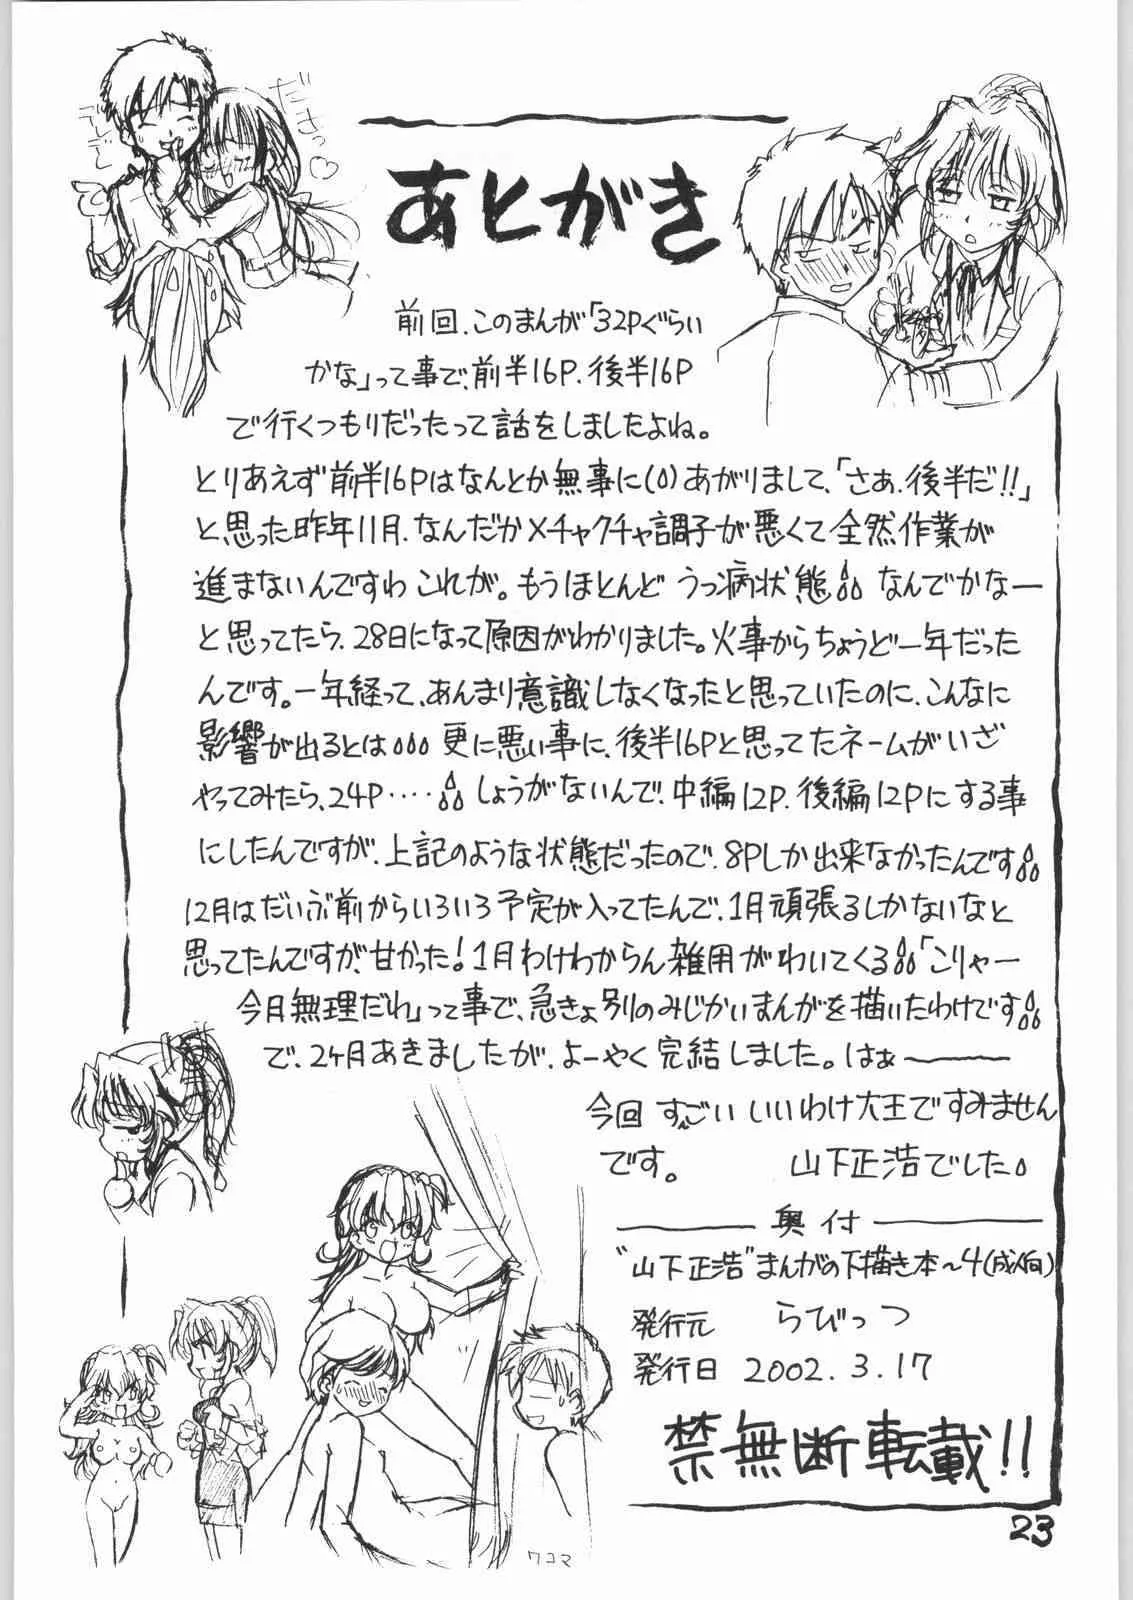 テレテレ
だきっ♡
あとがき
前回、このまんが「32Pぐらい
かな」って事で、前半16P、後半16P
で行くつもりだったって話をしましたよね。
とりあえず前半16Pはなんとか無事に(?)あがりまして、「さあ、後半だ!!」
と思った昨年11月、なんだかメチャクチャ調子が悪くて全然作業が
進まないんですわこれが。もうほとんどうつ病状態 なんでかなー
と思ってたら、28日になって原因がわかりました。火事からちょうど一年だった
んです。一年経って、あんまり意識しなくなったと思っていたのに、こんなに
影響が出るとは 更に悪い事に、後半16Pと思ってたネームがいざ
やってみたら、24P‥‥ しょうがないんで、中編12P、後編12Pにする事
にしたんですが、上記のような状態だったので、8Pしか出来なかったんです
12月はだいぶ前からいろいろ予定が入ってたんで、1月頑張るしかないなと
思ってたんですが、甘かった!1月わけわからん雑用がわいてくる 「こりゃー
今月無理だわ」って事で、急きょ別のみじかいまんがを描いたわけです
で、2ヶ月あきましたが、よーやく完結しました。はぁ~
今回 すっごい いいわけ大王ですみません
です。 山下正浩でした。
奥付
"山下正浩"まんがの下描き本〜4(成人向)
発行元 らびっつ
発行日 2002.3.17
禁無断転載!!
ワコマ
23